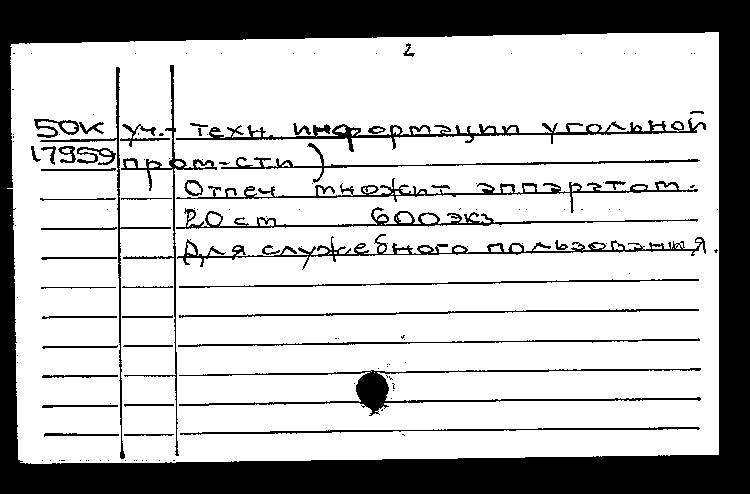 2
50К уч.- техн. информации угольной
17959 пром-сти).
Отпеч. множит. аппаратом.
20 см. 600 экз.
Для служебного пользования.